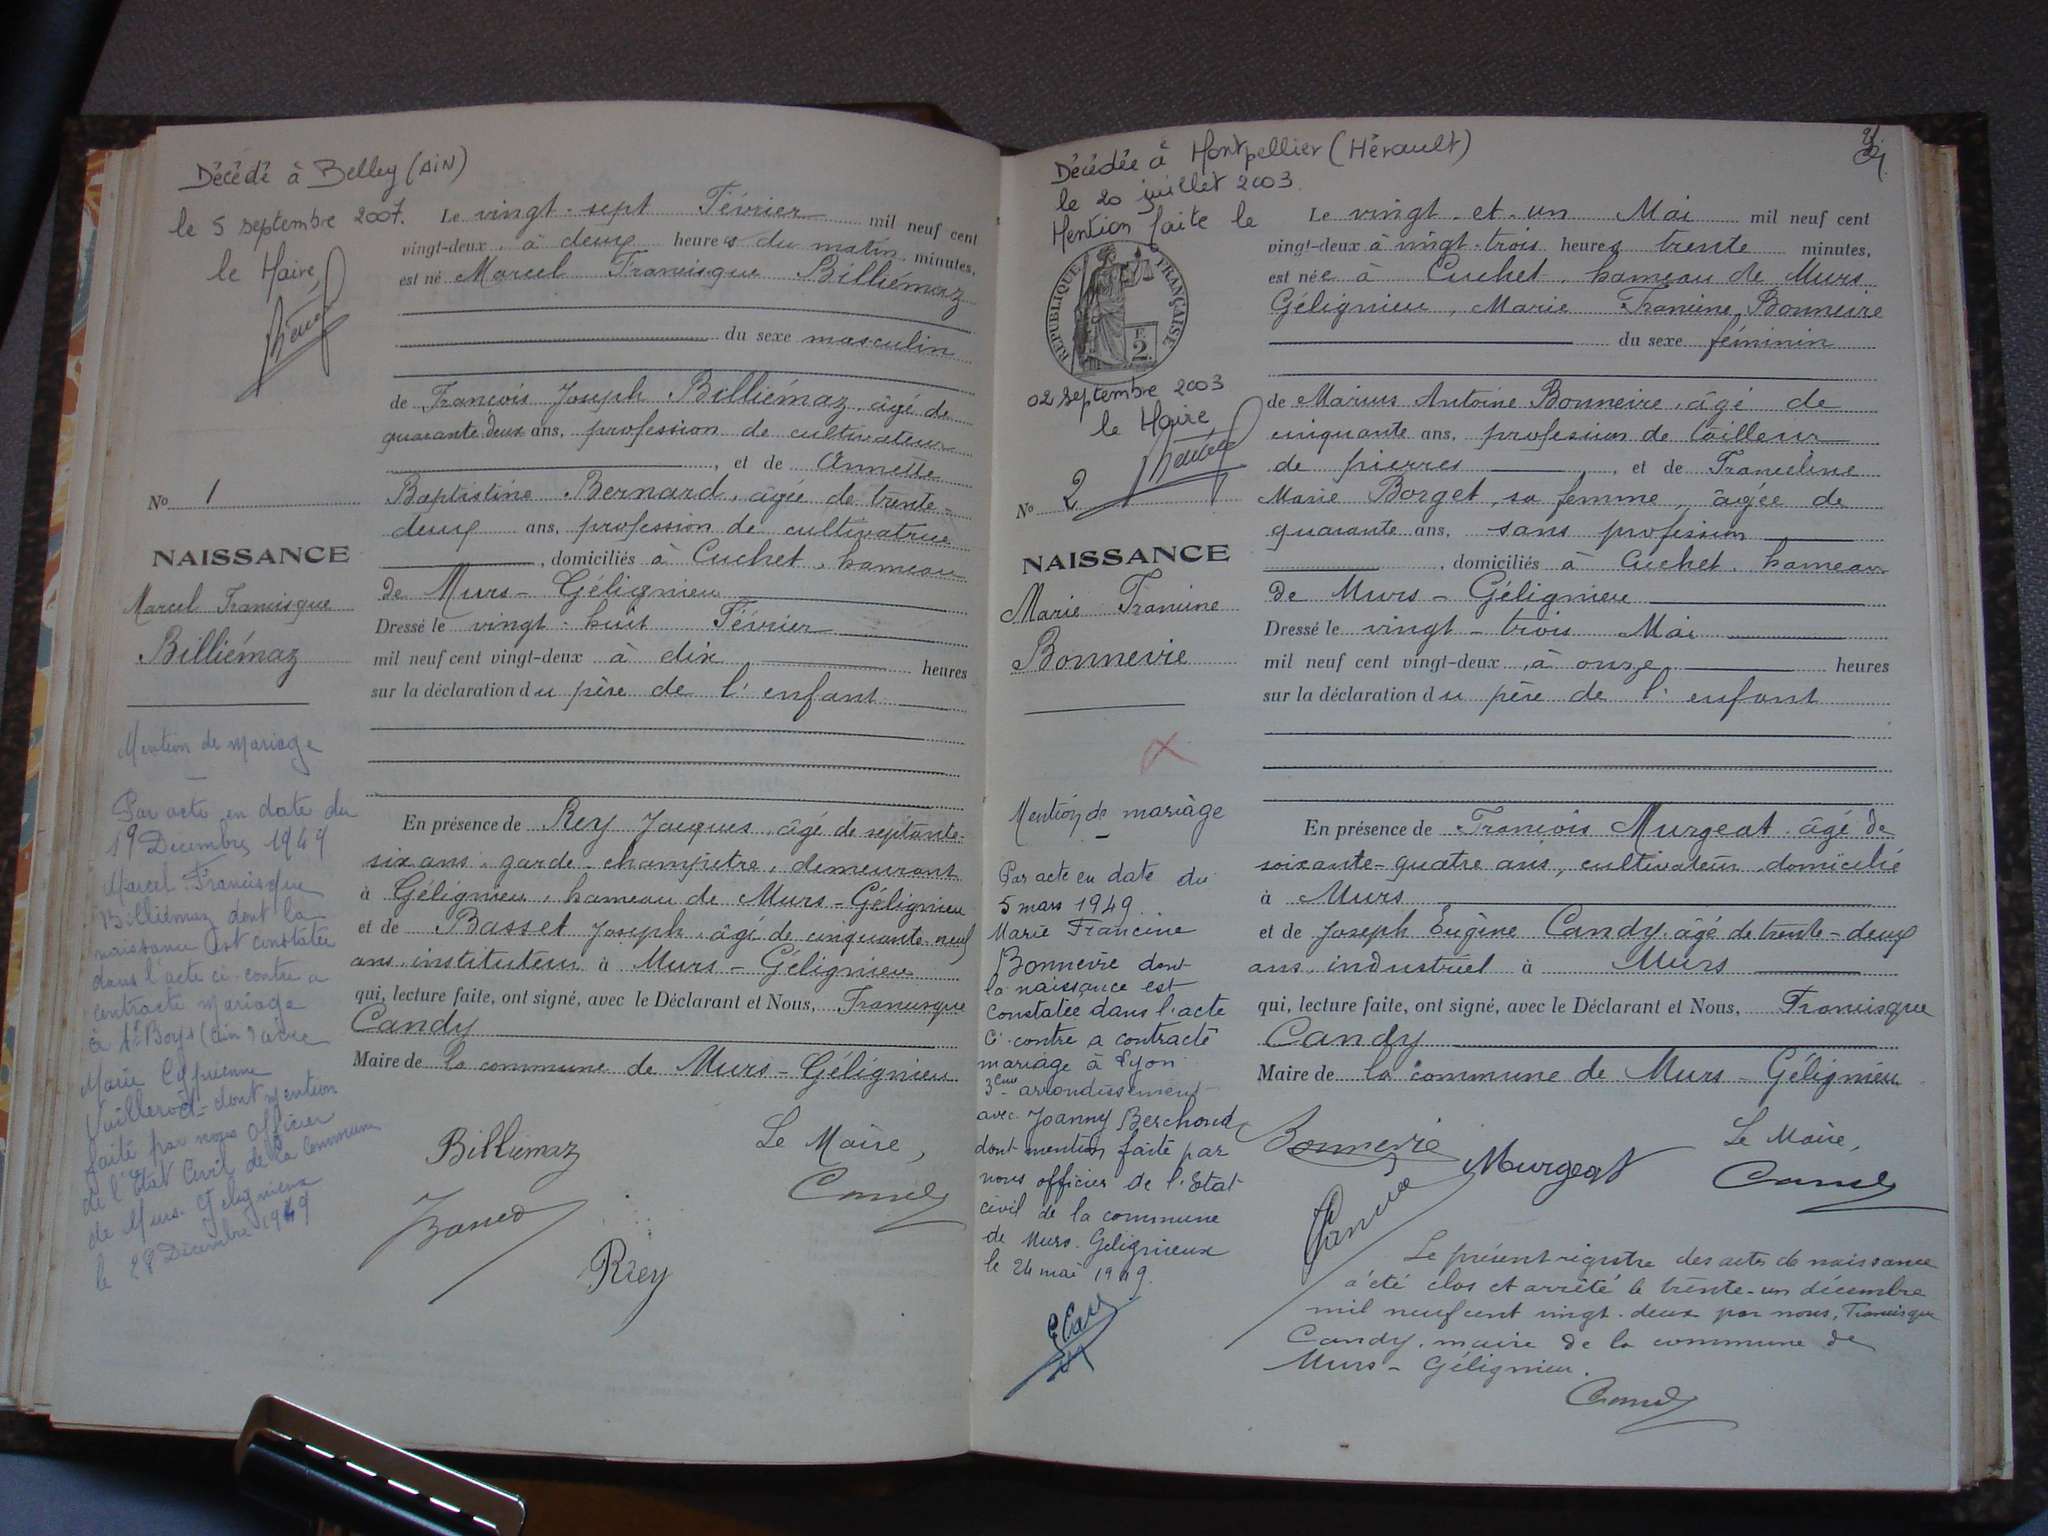 Décédé à Belley (AIN)
le 5 septembre 2007.
le Maire,
No 1
NAISSANCE
Marcel Francisque
Billiémaz
Mention de mariage
Par acte en date du
19 Décembre 1949
Marcel Francisque
Billiémaz dont la
naissance est constatée
dans l'acte ci-contre a
contracté mariage
à St Boys (ain) avec
Marie Cyprienne
dont mention
faite par nous officier
de l'Etat Civil de la Commune
de Murs-Gélignieux
le 28 Décembre 1949
Le vingt-sept Février mil neuf cent
vingt-deux, à deux heures du matin minutes,
est né Marcel Francisque Billiémaz
du sexe masculin
de François Joseph Billiémaz, âgé de
quarante deux ans, profession de cultivateur
, et de Annette
Baptistine Bernard, âgée de trente-
deux ans, profession de cultivatrice
, domiciliés à Cuchet, hameau
de Murs-Gélignieu
Dressé le vingt-huit Février
mil neuf cent vingt-deux à dix heures
sur la déclaration du père de l'enfant
En présence de Rey Jacques, âgé de septante-
six ans, garde-champêtre, demeurant
à Gélignieu, hameau de Murs-Gélignieu
et de Basset Joseph, âgé de cinquante neuf
ans, instituteur à Murs-Gélignieu
qui, lecture faite, ont signé, avec le Déclarant et Nous, Francisque
Candy
Maire de la commune de Murs-Gélignieu
Billiemaz
Le Maire,
Candy
Basset
Rey
Décédée à Montpellier (Hérault)
le 20 juillet 2003.
Mention faite le
RÉPUBLIQUE FRANÇAISE
F.
2
02 septembre 2003
le Maire,
No 2
NAISSANCE
Marie Francine
Bonnevie
Mention de mariage
Par acte en date du
5 mars 1949
Marie Francine
Bonnevie dont
la naissance est
constatée dans l'acte
ci-contre a contracté
mariage à Lyon
3eme arrondissement
avec Joanny Berchoud
dont mention faite par
nous officier de l'Etat
civil de la commune
de Murs-Gelignieux
le 24 mai 1949.
Le vingt-et-un Mai mil neuf cent
vingt-deux à vingt-trois heures trente minutes,
est née à Cuchet, hameau de Murs
Gélignieu, Marie Francine Bonnevie
du sexe féminin
de Marius Antoine Bonnevie, âgé de
cinquante ans, profession de tailleur
de pierres , et de Franceline
Marie Borget, sa femme, âgée de
quarante ans, sans profession
, domiciliés à Cuchet, hameau
de Murs-Gélignieu
Dressé le vingt-trois Mai
mil neuf cent vingt-deux, à onze heures
sur la déclaration du père de l'enfant
En présence de François Murgeat, âgé de
soixante-quatre ans, cultivateur, domicilié
à Murs
et de Joseph Eugène Candy, âgé de trente-deux
ans, industriel à Murs
qui, lecture faite, ont signé, avec le Déclarant et Nous, Francisque
Candy
Maire de la commune de Murs-Gélignieu
Bonnevie
Murgeat
Le Maire,
Candy
Le présent registre des actes de naissance
a été clos et arrêté le trente-un décembre
mil neuf cent vingt-deux par nous, Francisque
Candy, maire de la commune de
Murs-Gélignieu.
Candy